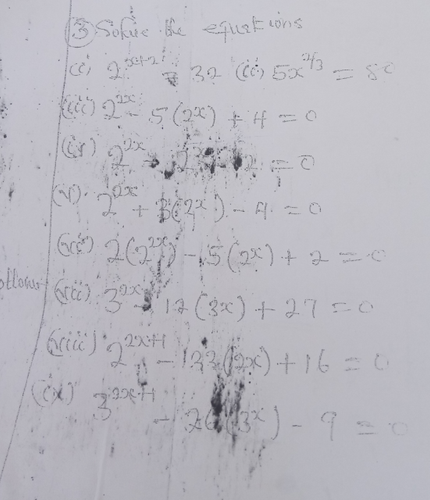 ③ Solve the equations
(i) 2^{x+2} = 32 (ii) 5x^{2/3} = 80
(iii) 2^{2x} - 5(2^x) + 4 = 0
(iv) 2^{2x} = 0
(v). 2^{2x} + 3(2^x) - 4 = 0
2(2^{2x}) - 5(2^x) + 2 = 0
(vii) 3^{2x} - 12(3x) + 27 = 0
(viii) 2^{2x+1} - 33(2x) + 16 = 0
(ix) 3^{2x+1}
- 26(3^x) - 9 = 0